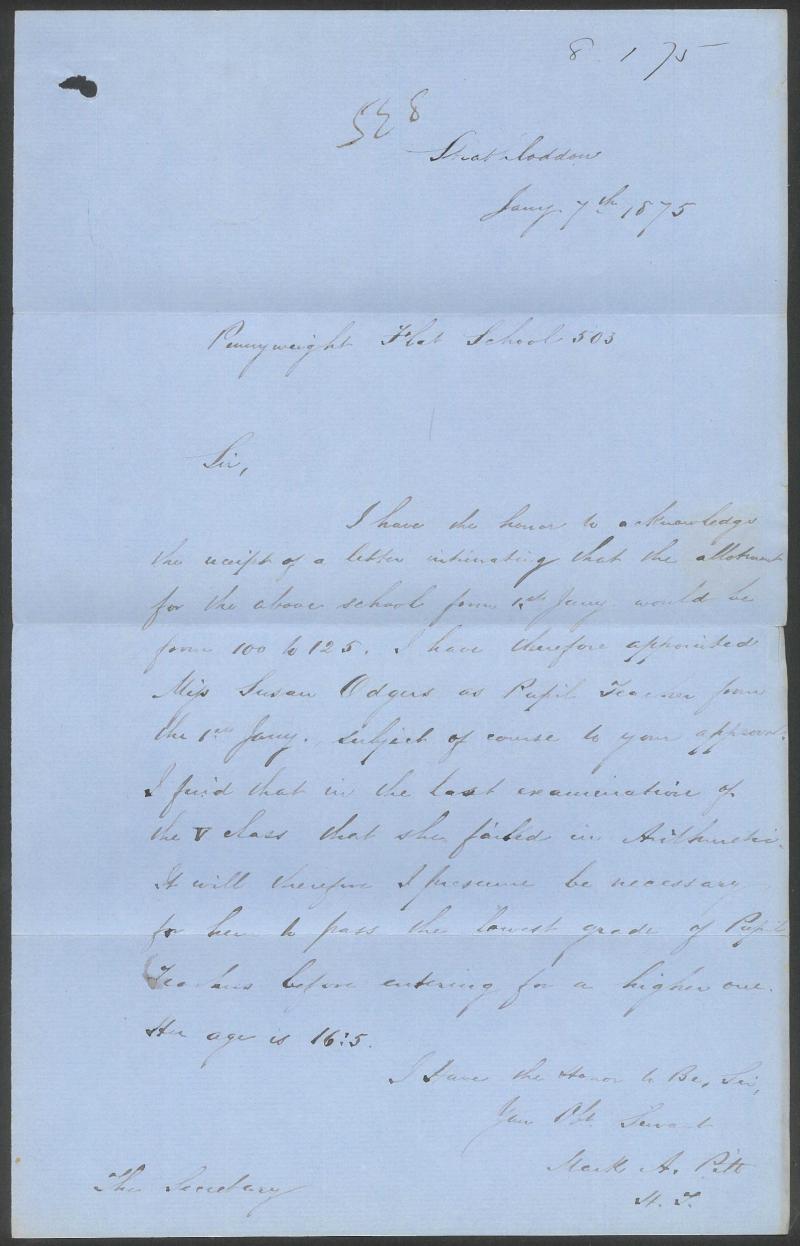 8 1 75
528
Strathloddon
Jany 7th 1875
Pennyweight Flat School 503
Sir,
I have the honor to acknowledge
the receipt of a letter intimating that the allotment
for the above school from 1st Jany. would be
from 100 to 125. I have therefore appointed
Miss Susan Odgers as Pupil Teacher from
the 1st Jany. subject of course to your approval.
I find that in the last examination of
the V class that she failed in Arithmetic.
It will therefore I presume be necessary
for her to pass the lowest grade of Pupil
Teachers before entering for a higher one.
Her age is 16:5.
I Have the Honor to Be, Sir,
Your Obt. Servant
Mark A. Pitt
H. T.
The Secretary